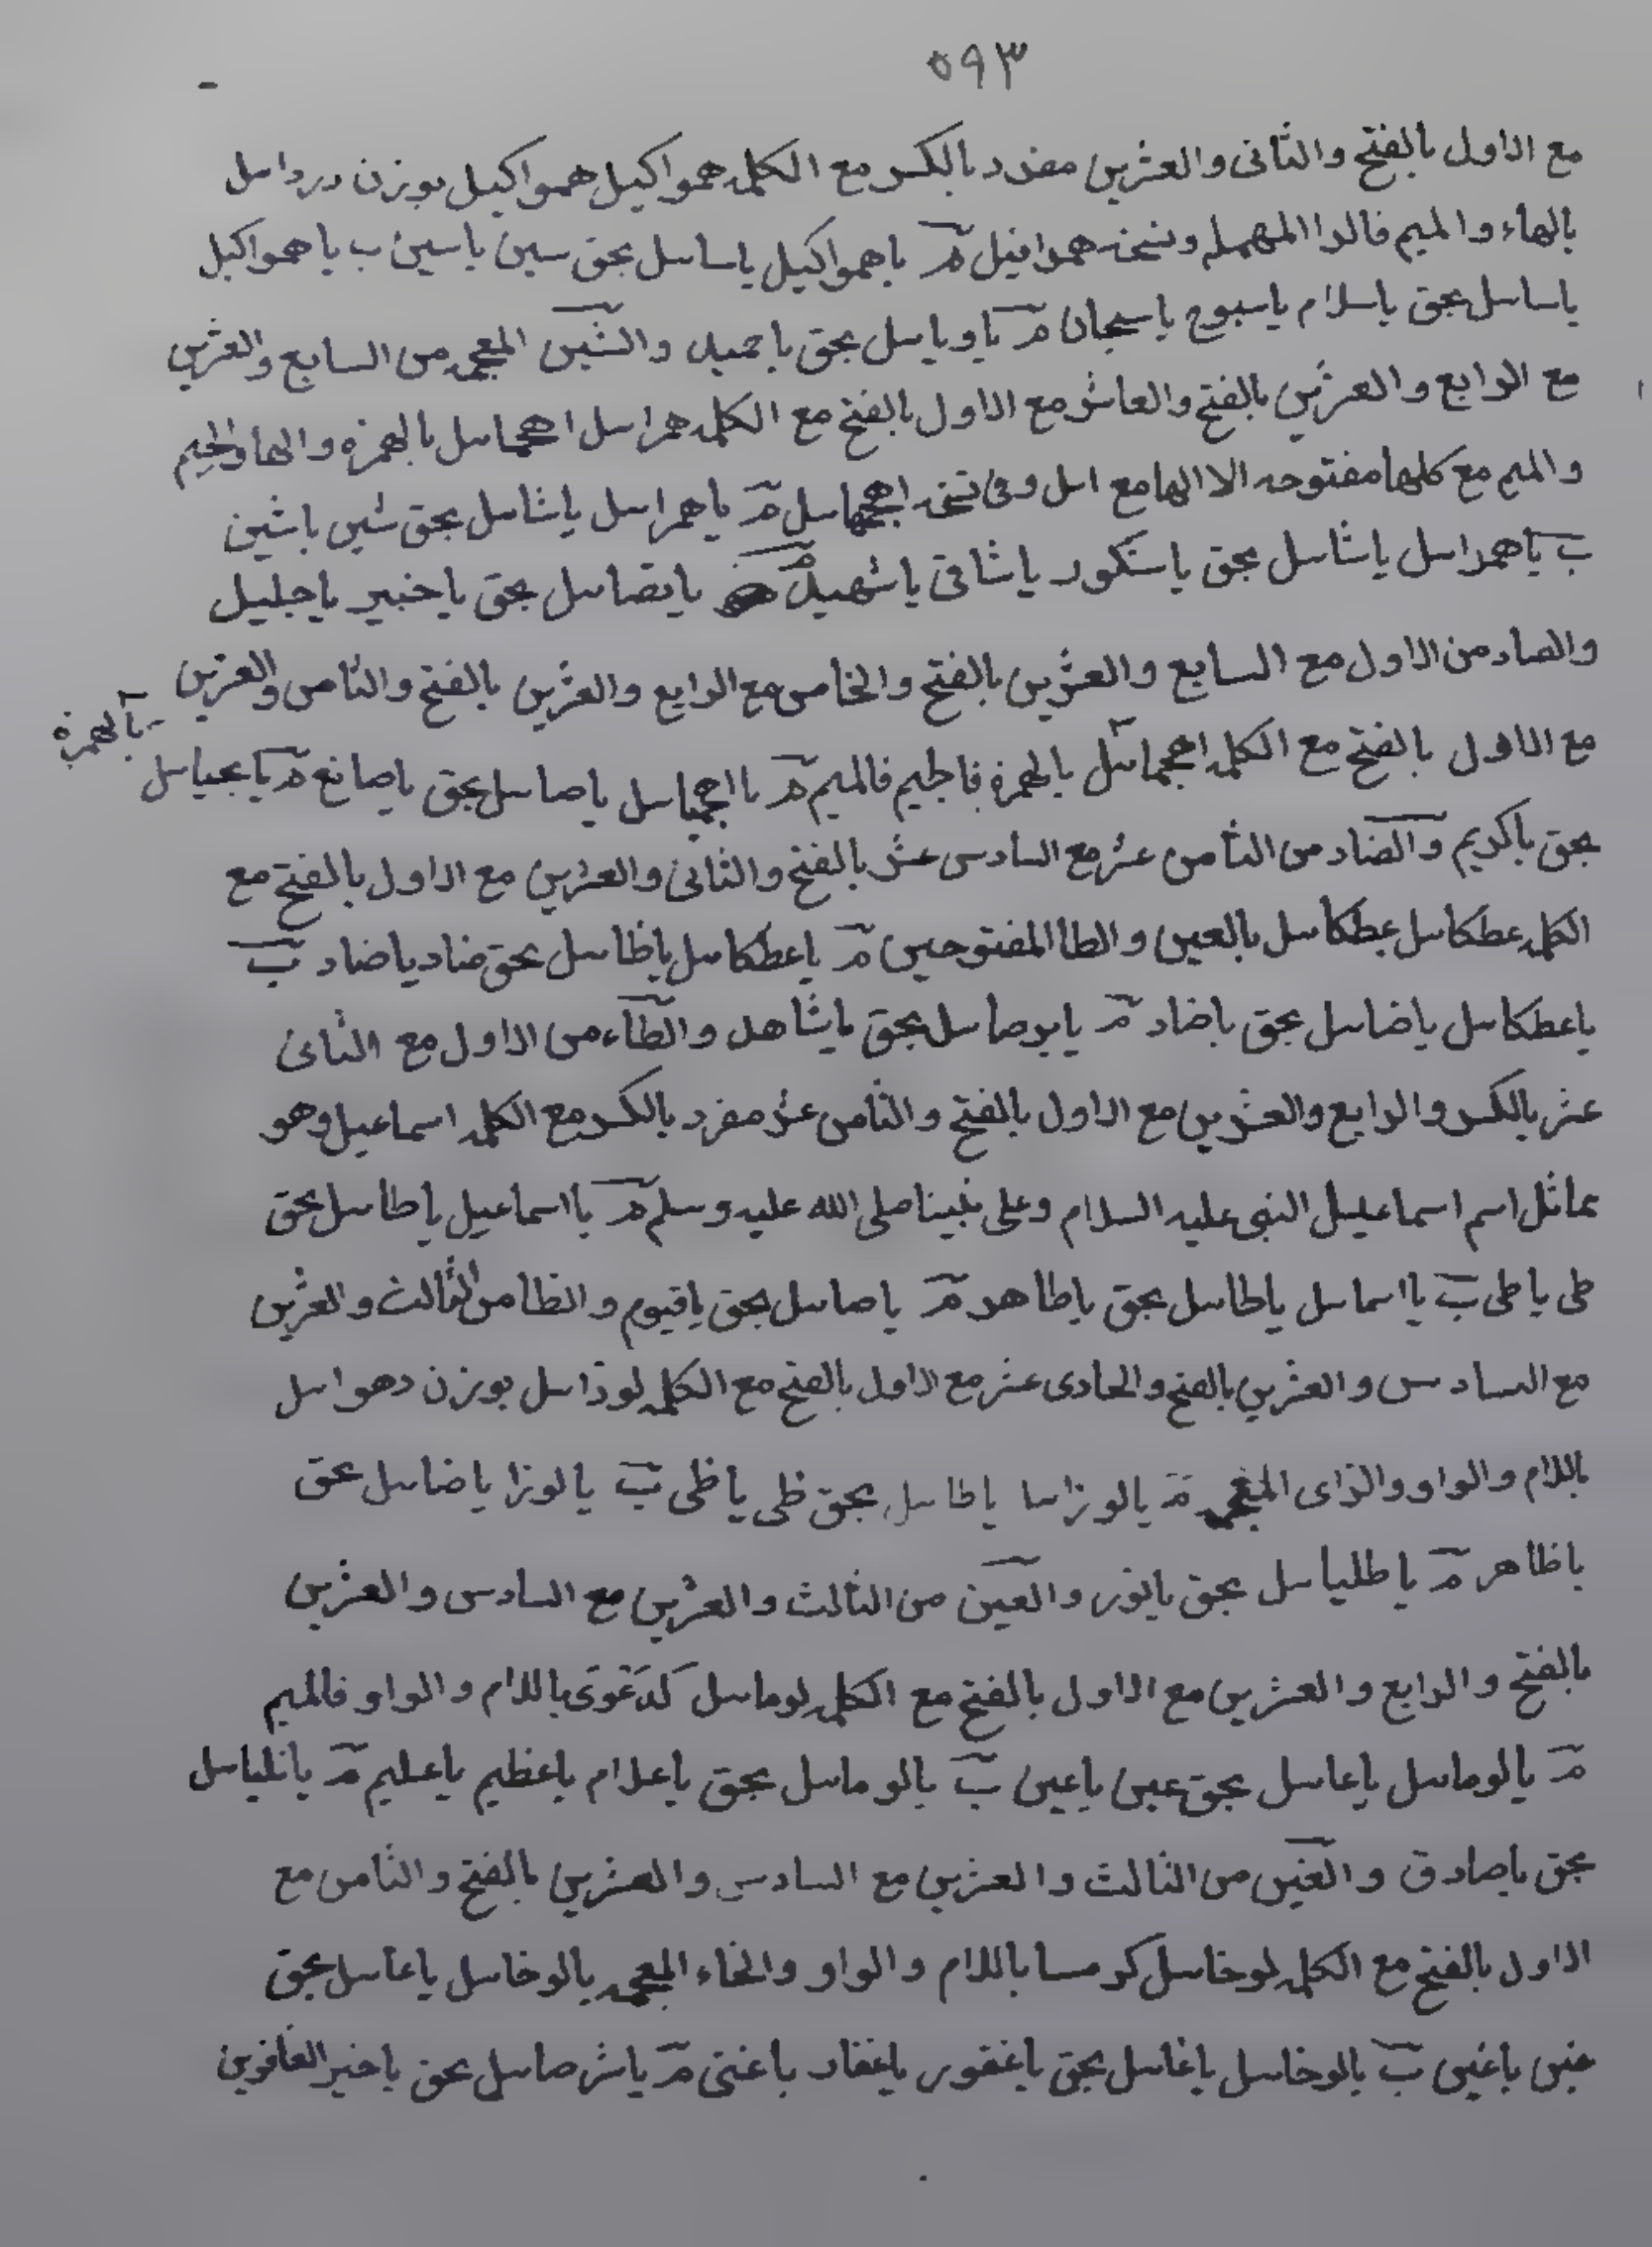 ٥٩٣
مع الاول بالفتح والثانى والعشرين مفرد بالكسر مع الكلمه همواكيل همواكيل بوزن درداىىل
بالهاء والميم فالواالمهمله ونسخه هموافيل م ياهمواكيل ياساىىل بحق سين ياسين ب ياهمواكيل
ياساىىل بحق ياسلام ياسبوح ياسبحان م ياوياىىل بحق ياحميد والشين المعجمه من السابع والعشرين
مع الرابع والعشرين بالفتح والعاشر مع الاول بالفتح مع الكلمه همراىىل اهجماىىل بالهمزه والهاوالجيم
والميم مع كلهامفتوحه الاالهامع اىىل وفى نسخه اهجهاىىل م ياهمراىىل ياشاىىل بحق شين ياشين
ب ياهمراىىل ياشاىىل بحق ياشكور ياشافى ياشهيد م ياىقضاىىل بحق ياخبير ياجليل
والصاد من الاول مع السابع والعشرين بالفتح والخامس مع الرابع والعشرين بالفتح والثامن والعشرين
مع الاول بالفتح مع الكلمه اهجماىىل بالهمزه فالجيم فالميم م يااهجماىىل ياصاىىل بحق ياصانع م يابحياىىل
بالهمزة
بحق ياكريم والضاد من الثامن عشر مع السادس عشر بالفتح والثانى والعشرين مع الاول بالفتح مع
الكلمه عطكاىىل عطكاىىل بالعين والطاالمفتوحين م ياعطكاىىل ياظاىىل بحق ضاد ياضاد ب
ياعطكاىىل ياضاىىل بحق ياضاد م يابوصاىىل بحق ياشاهد والطاء من الاول مع الثانى
عشر بالكسر والرابع والعشرين مع الاول بالفتح والثامن عشر مفرد بالكسر مع الكلمه اسماعيل وهو
يماثل اسم اسماعيل النبى عليه السلام وعلى نبينا صلى الله عليه وسلم م يااسماعيل ياطاىىل بحق
طى ياطى ب يااسماىىل ياطاىىل بحق ياطاهر م ياصاىىل بحق ياقيوم والظا من الثالث والعشرين
مع السادس والعشرين بالفتح والحادى عشر مع الاول بالفتح مع الكلمه لوزاىىل بوزن دهواىىل
باللام والواو والزاى المعجمه م يالوزاىىا ياظاىىل بحق ظى ياظى ب يالوزا ياضاىىل بحق
ياظاهر م ياطلياىىل بحق يانور والعين من الثالث والعشرين مع السادس والعشرين
بالفتح والرابع والعشرين مع الاول بالفتح مع الكلمه لوماىىل كدعوى باللام والواو فالميم
م يالوماىىل ياعاىىل بحق عين ياعين ب يالوماىىل بحق ياعلام ياعظيم ياعليم م
بحق ياصادق والغين من الثالث والعشرين مع السادس والعشرين بالفتح والثامن مع
الاول بالفتح مع الكلمه لوخاىىل باللام والواو والخاء المعجمه يالوخاىىل ياغاىىل بحق
غين ياغين ب يالوخاىىل ياغاىىل بحق ياغفور ياغفار ياغنى م بحق ياخير الغافرين